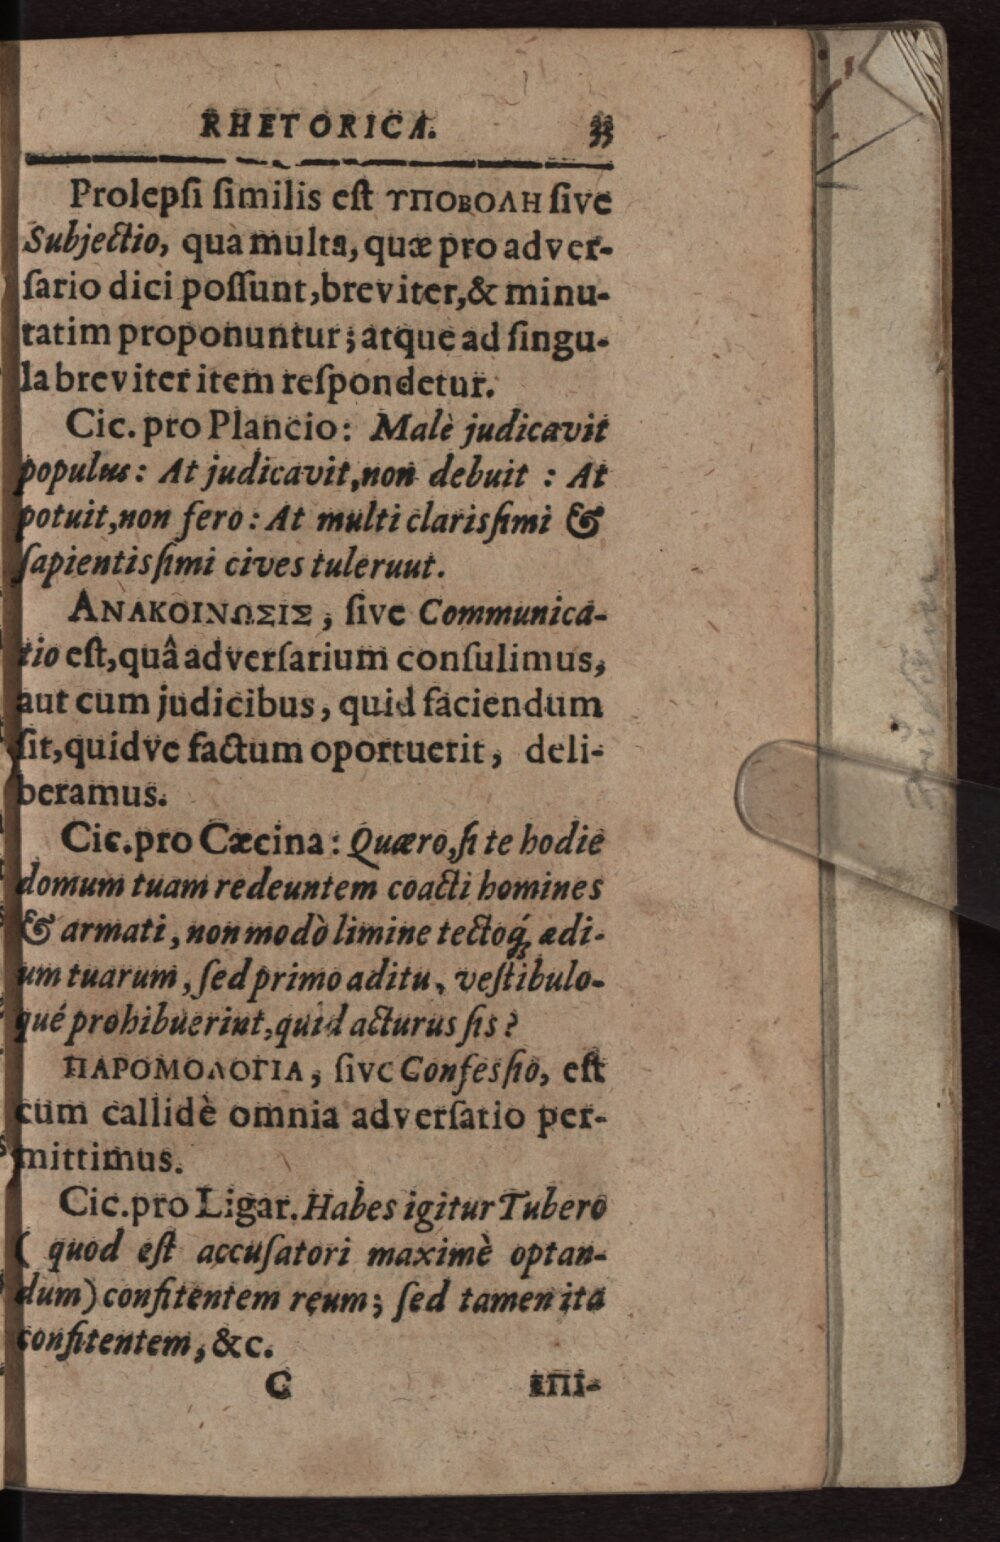 RHETORICA. 33
Prolepsi similis est ΥΠΟΒΟΛΗ sive
Subjectio, qua multa, quæ pro adver-
sario dici possunt, breviter, & minu-
tatim proponuntur; atque ad singu-
la breviter item respondetur.
Cic. pro Plancio: Malè judicavit
populus: At judicavit, non debuit : At
potuit, non fero: At multi clarissimi &
sapientissimi cives tuleruut.
ΑΝΑΚΟΙΝΩΣΙΣ, sive Communica-
tio est, quâ adversarium consulimus,
aut cum judicibus, quid faciendum
sit, quidve factum oportuerit, deli-
beramus.
Cic. pro Cæcina: Quæro, si te hodie
domum tuam redeuntem coacti homines
& armati, non modò limine tectoq́; ædi-
um tuarum, sed primo aditu, vestibulo-
qué prohibuerint, quid acturus sis?
ΠΑΡΟΜΟΛΟΓΙΑ, sive Confessio, est
cum callidè omnia adversario per-
mittimus.
Cic. pro Ligar. Habes igitur Tubero
( quod est accusatori maximè optan-
dum) confitentem reum; sed tamen ita
confitentem, &c.
C ΕΠΙ-